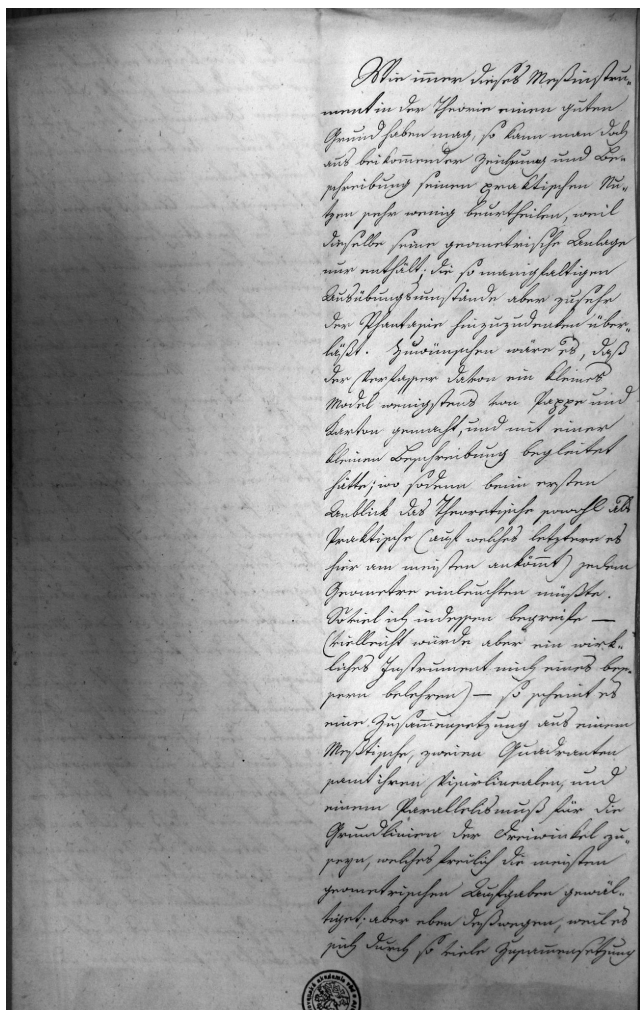 Wie immer dieses Meßinstru-
ment in der Theorie einen guten
Grund haben mag, so kann man doch
aus beikommender Zeichnung und Be-
schreibung seinen praktischen Nu-
tzen sehr wenig beurtheilen, weil
dieselbe seine geometrische Anlage
nur enthält; die so manigfaltigen
Ausübungsumstände aber zusehr
der Phantasie hinzuzudenken über-
läßt. Zuwünschen wäre es, daß
der Verfasser davon ein kleines
Model wenigstens von Pappe und
Karton gemacht, und mit einer
kleinen Beschreibung begleitet
hätte; wo sodenn beim ersten
Anblick das Theoretische sowohl als
Praktische (auf welches letztere es
hier am meisten ankömmt) jedem
Geometre einleuchten müßte.
Soviel ich indessen begreife —
(vielleicht würde aber ein wirk-
liches Instrument mich eines bes-
sern belehren) — so scheint es
eine Zusammensetzung aus einem
Meßtische, zweien Quadranten
samt ihren Visirlinealen, und
einem Parallelismuß für die
Grundlinien der Dreiwinkel zu-
seyn, welches freilich die meisten
geometrischen Aufgaben gewäl-
tiget; aber eben deßwegen, weil es
sich durch so viele Zusammensetzung
akademie věd a